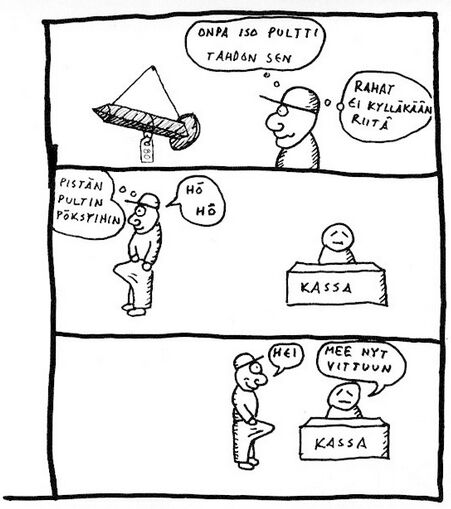 ONPA ISO PULTTI
TAHDON SEN
RAHAT
EI KYLLÄKÄÄN
RIITÄ
80
PISTÄN
PULTIN
PÖKSYIHIN
HÖ
HÖ
KASSA
HEI
MEE NYT
VITTUUN
KASSA